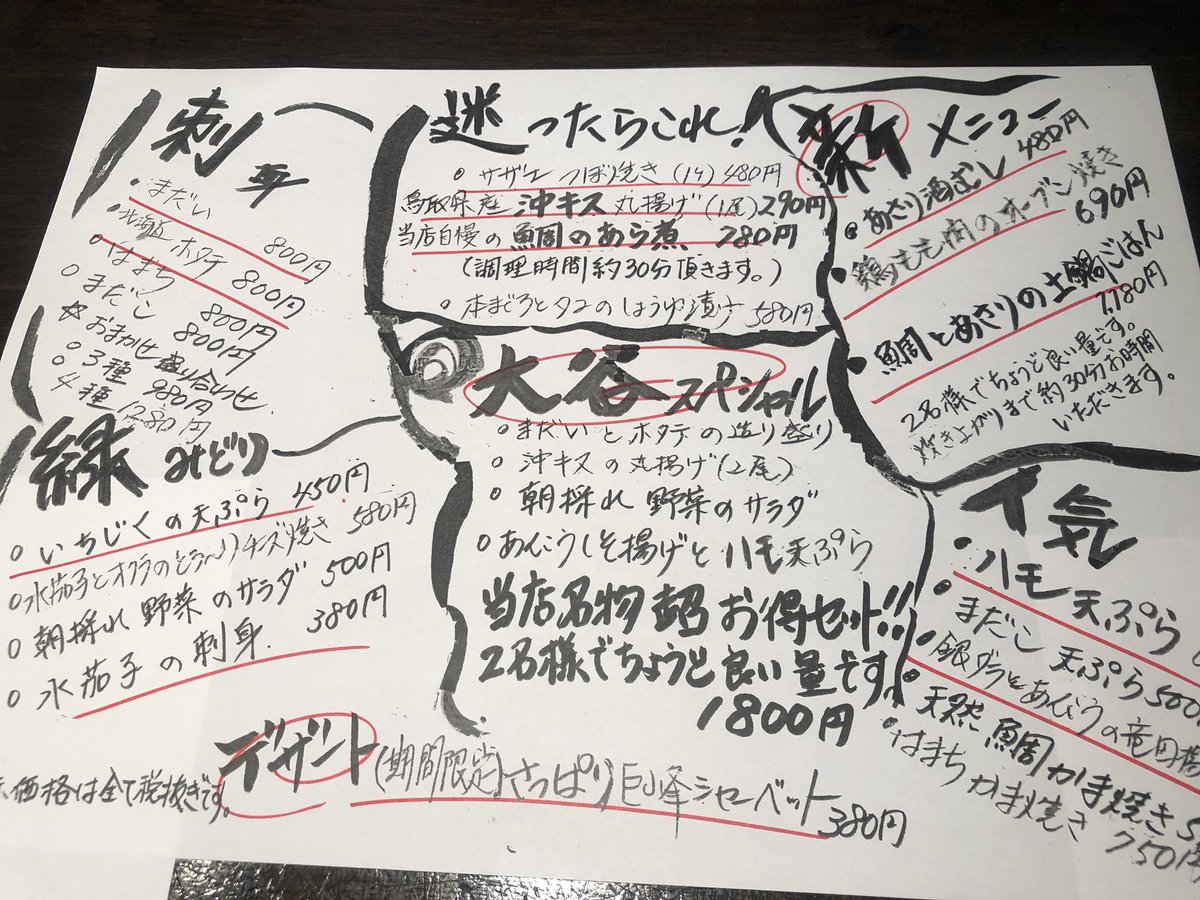 刺身
・まだい 800円
・北海道ホタテ 800円
・はまち 800円
○まだこ 800円
☆おまかせ盛り合わせ
○3種 980円
○4種 1280円
迷ったらこれ!!
○サザエつぼ焼き(1ケ)480円
鳥取県産沖キス丸揚げ(1尾)290円
当店自慢の鯛のあら煮 780円
(調理時間約30分頂きます。)
○本まぐろとタコのしょうゆ漬け 580円
新メニュー
・あさり酒むし 480円
・鶏もも肉のオーブン焼き
690円
・鯛とあさりの土鍋ごはん
1780円
2名様でちょうど良い量です。
炊き上がりまで約30分お時間
いただきます。
緑 みどり
○いちじくの天ぷら 450円
○水茄子とオクラのとろ〜りチーズ焼き 580円
○朝採れ野菜のサラダ 500円
○水茄子の刺身 380円
大谷スペシャル
○まだいとホタテの造り盛り
○沖キスの丸揚げ(2尾)
○朝採れ野菜のサラダ
○あんこうしそ揚げとハモ天ぷら
当店名物 超お得セット!!
2名様でちょうど良い量です。
1800円
人気
・ハモ天ぷら
・まだこ天ぷら 500
・銀ダラとあんこうの竜田揚
・天然鯛かま焼き 5
・はまちかま焼き 750円
デザート(期間限定)さっぱり巨峰シャーベット 380円
価格は全て税抜きです。